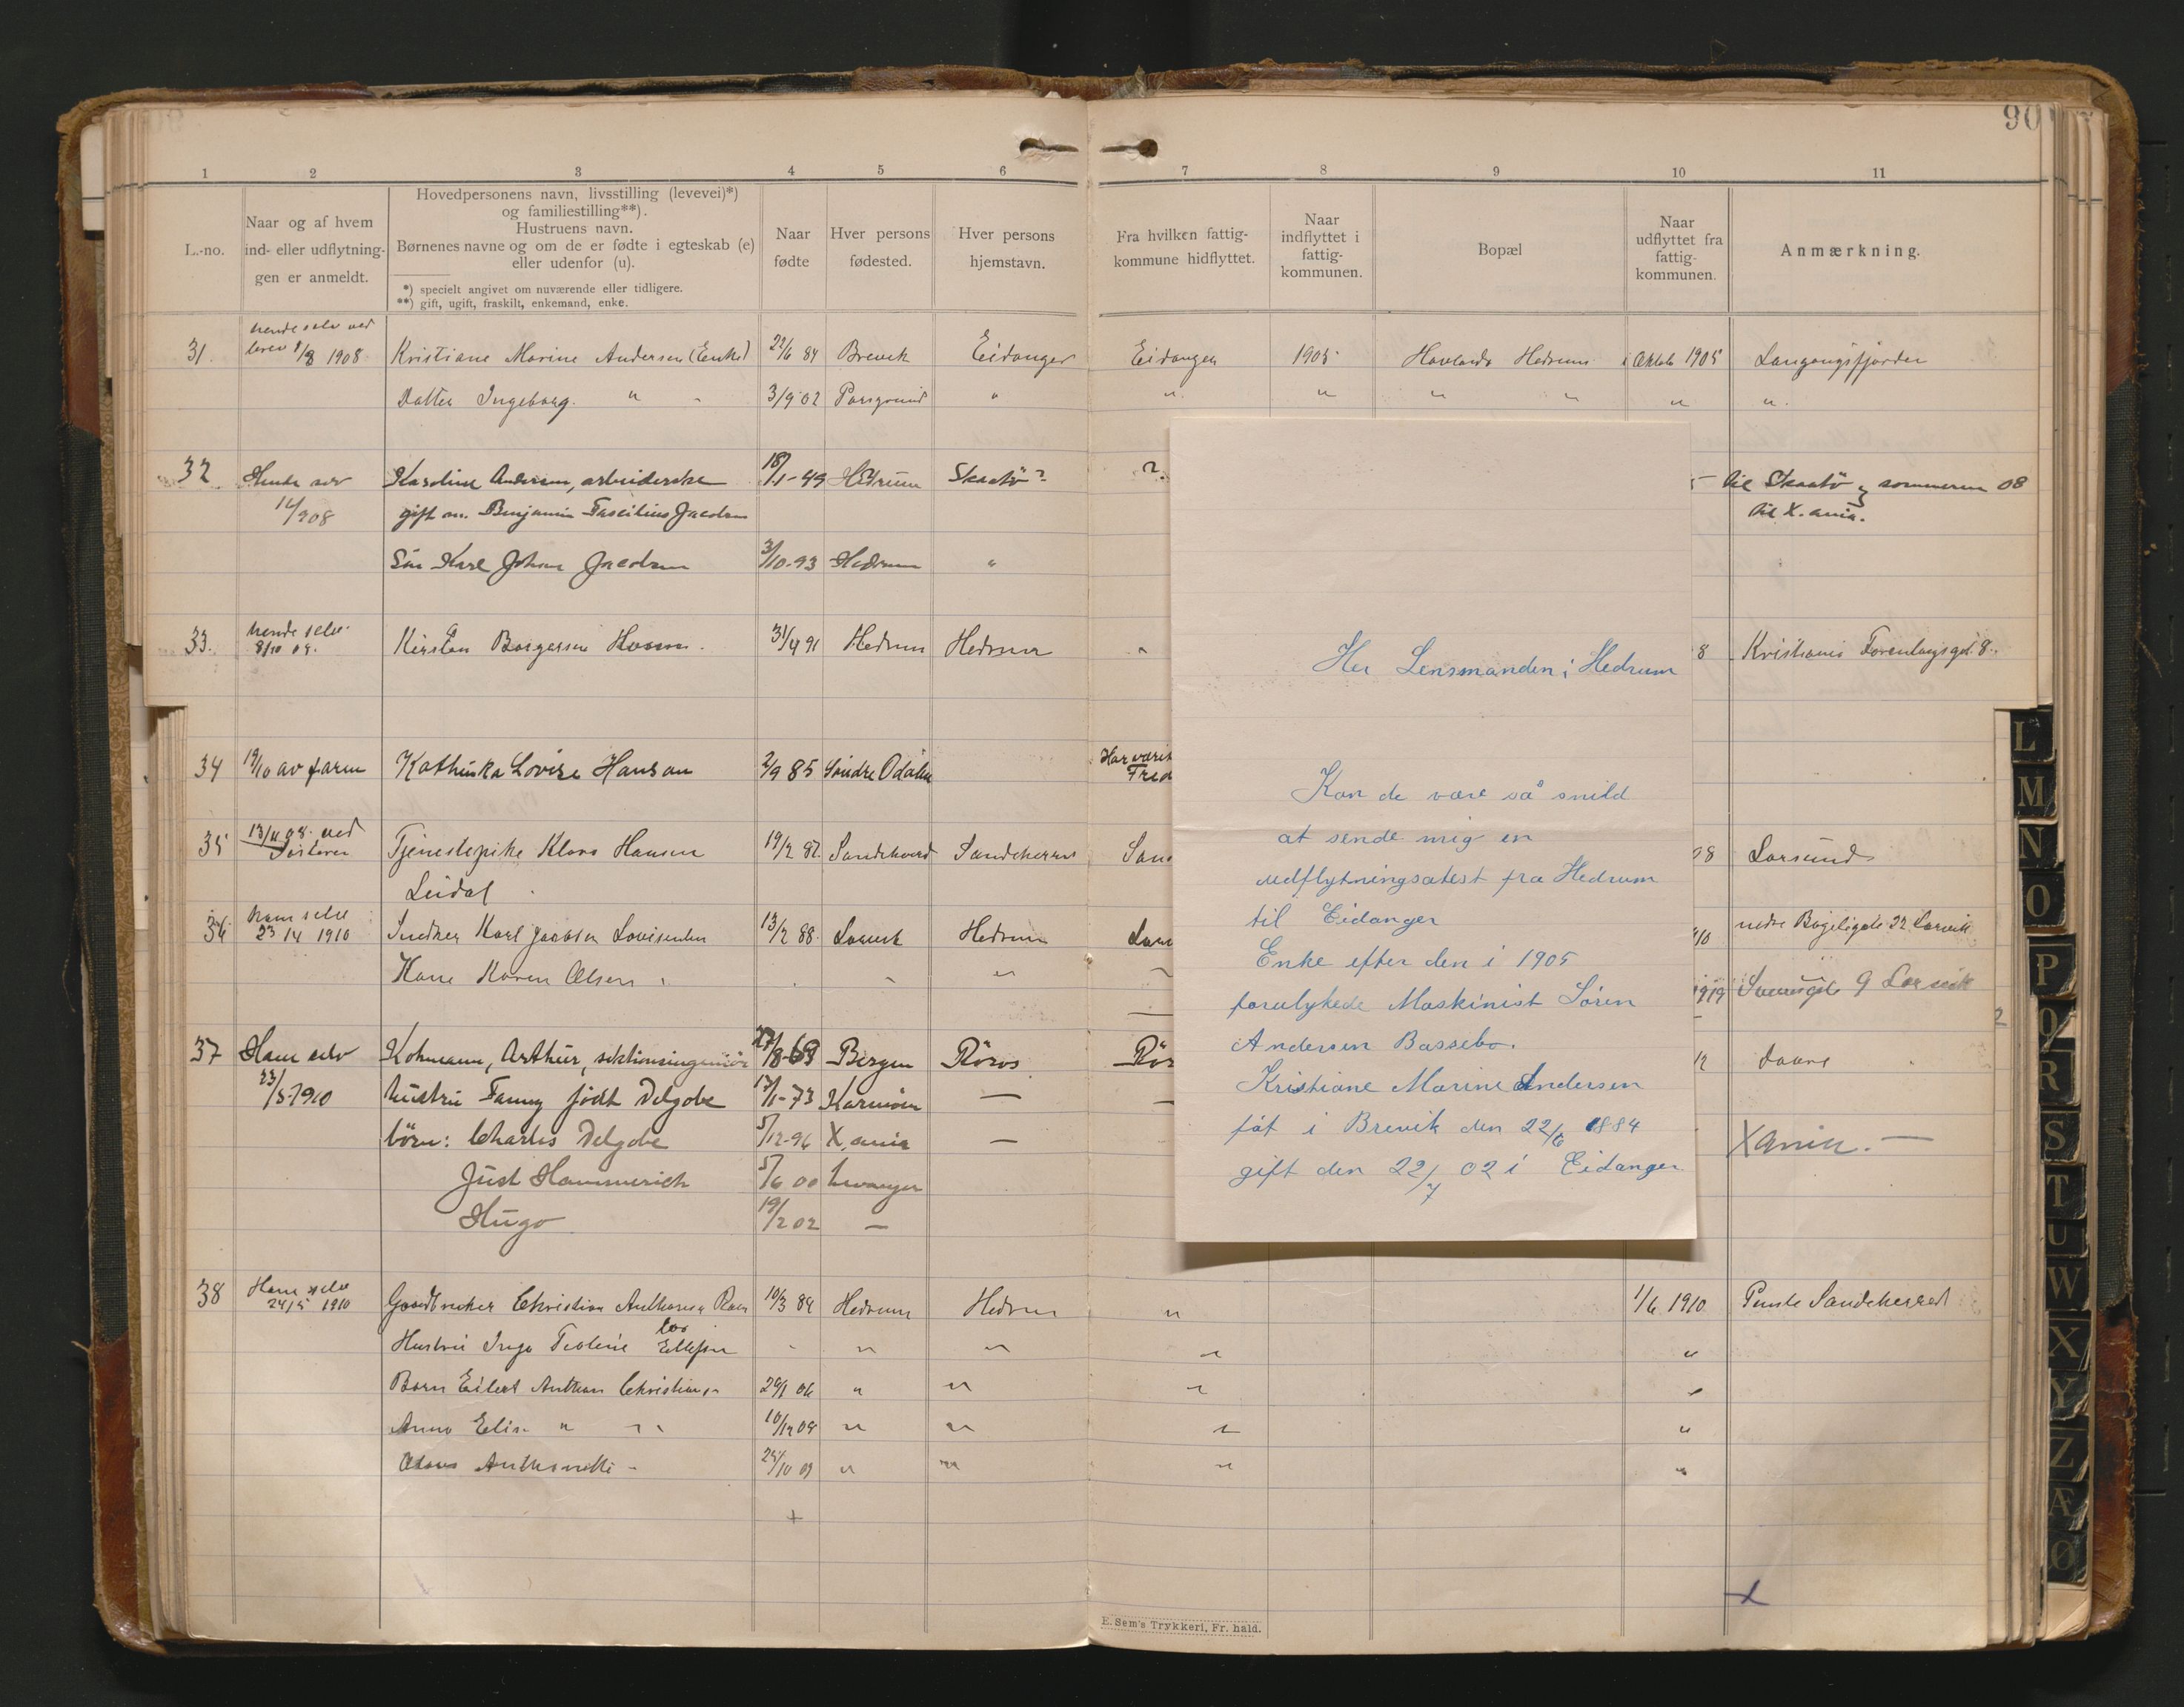 90
1 2 3 4 5 6 7 8 9 10 11
L.-no.
Naar og af hvem
ind- eller udflytnin-
gen er anmeldt.
Hovedpersonens navn, livsstilling (levevei)*)
og familiestilling**).
Hustruens navn.
Børnenes navne og om de er fødte i egteskab (e)
eller udenfor (u).
*) specielt angivet om nuværende eller tidligere.
**) gift, ugift, fraskilt, enkemand, enke.
Naar
fødte
Hver persons
fødested.
Hver persons
hjemstavn.
Fra hvilken fattig-
kommune hidflyttet.
Naar
indflyttet i
fattig-
kommunen.
Bopæl
Naar
udflyttet fra
fattig-
kommunen.
Anmærkning.
hende selv ved
31. brev 8/8 1908 Kristiane Marine Andersen (Enke) 22/6 84 Brevik Eidanger Eidanger 1905 Hedrum Oktob 1905 Langangsfjorden
Datter Ingeborg " - 3/9 02 Porsgrund " " " " " " "
32 Hende selv Karoline Andersen, arbeiderske 18/1-49 Hedrum Skaatö? ? til Skaatö og sommeren 08
14/9 08 gift m. Benjamin Jacobsen til X.ania.
Sön Karl Johan Jacobsen 3/10-93 Hedrum "
33. hende selv 8/10 08. Borgersen 31/4 91 Hedrum Hedrum " 8 Kristiania 8.
34 19/10 av faren Kathinka Lovise Hansen 2/9 85 Söndre Odalen Har værit
Fred
35 13/11 08. ved Tjenestepike Klara Hansen 19/2 87. Sandeherred Sandeherred San 08
Leidal
36 ham selv 23/4 1910 Snedker Karl Jacobsen Lovisenlen 13/2 88. Larvik Hedrum Lar 10 nedre 22 Larvik
Kone Karen Olsen 1919 9 Larvik
37 Ham selv Kohmann, Arthur, sektionsingeniör 27/8-69 Bergen Röros Rör 12
23/5-1910 hustru Fanny födt Delgobe 17/1-73 Karmöen —
börn: Charles Delgobe 5/12-96 X.ania — Xania. —
Just Hammerich 5/6 00 Levanger
Hugo 19/2 02 —
38 Ham selv 24/5 1910 Gaardbruker Christian Anthonsen 10/3 84 Hedrum Hedrum " 1/6 1910 Sandeherred
Hustru Inga Teoline Ellefsen - " " " "
Barn Eilert Anthon Christiansen 29/1 06 " " " "
Anna Elise " 10/12 08 " " " "
25/10 09 " " " "
+
x
Her Lensmanden i Hedrum
Kan de være så snild
at sende mig en
udflytningsatest fra Hedrum
til Eidanger
Enke efter den i 1905
forulykede Maskinist Sören
Andersen Bassebo.
Kristiane Marine Andersen
föt i Brevik den 22/6 1884
gift den 22/7 02 i Eidanger
E. Sem's Trykkeri, Fr. hald.
L
M
N
O
P
Q
R
S
T
U
W
X
Y
Z
Æ
Ø